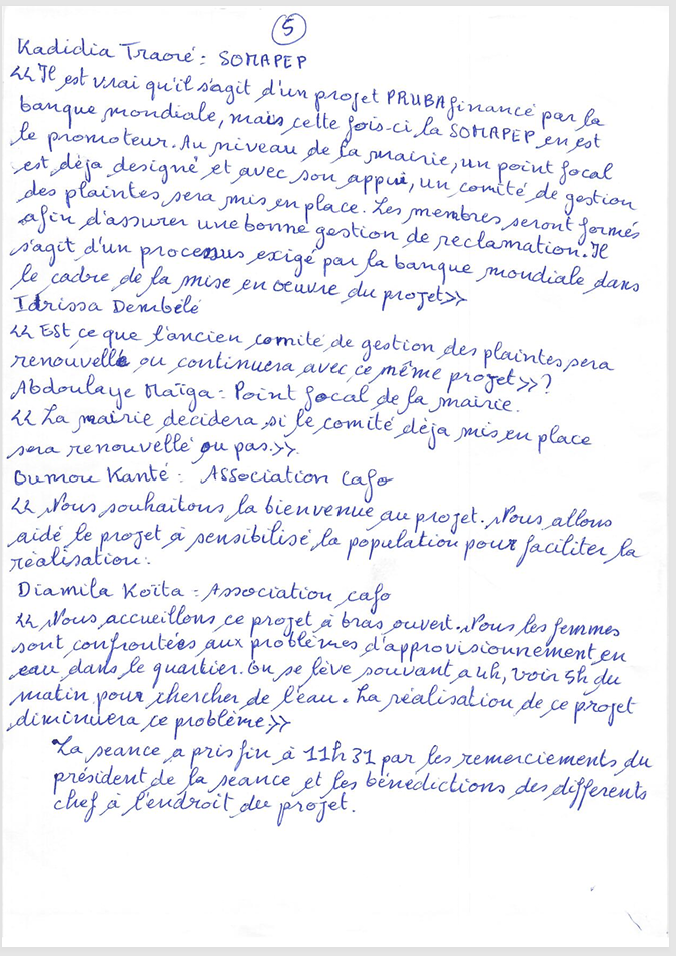 5
Kadidia Traoré : SOMAPEP
<< Il est vrai qu'il s'agit d'un projet PRUBA financé par la
banque mondiale, mais cette fois-ci la SOMAPEP en est
le promoteur. Au niveau de la mairie, un point focal
est déja designé et avec son appui, un comité de gestion
des plaintes sera mis en place. Les membres seront formés
afin d'assurer une bonne gestion de reclamation. Il
s'agit d'un processus exigé par la banque mondiale dans
le cadre de la mise en oeuvre du projet>>
Idrissa Dembélé
<< Est ce que l'ancien comité de gestion des plaintes sera
renouvellé ou continuera avec ce même projet>> ?
Abdoulaye Maïga : Point focal de la mairie.
<< La mairie decidera si le comité déja mis en place
sera renouvellé ou pas.>>.
Oumou Kanté : Association cafo
<< Nous souhaitons la bienvenue au projet. Nous allons
aidé le projet à sensibilisé la population pour faciliter la
réalisation.
Diamila Koïta : Association cafo
<< Nous accueillons ce projet à bras ouvert. Nous les femmes
sont confrontées aux problèmes d'approvisionnement en
eau dans le quartier. on se lève souvant a 4h, voir 5h du
matin pour chercher de l'eau. La réalisation de ce projet
diminuera ce problème>>
La seance a pris fin à 11h 31 par les remerciements du
président de la seance et les bénédictions des differents
chef à l'endroit du projet.